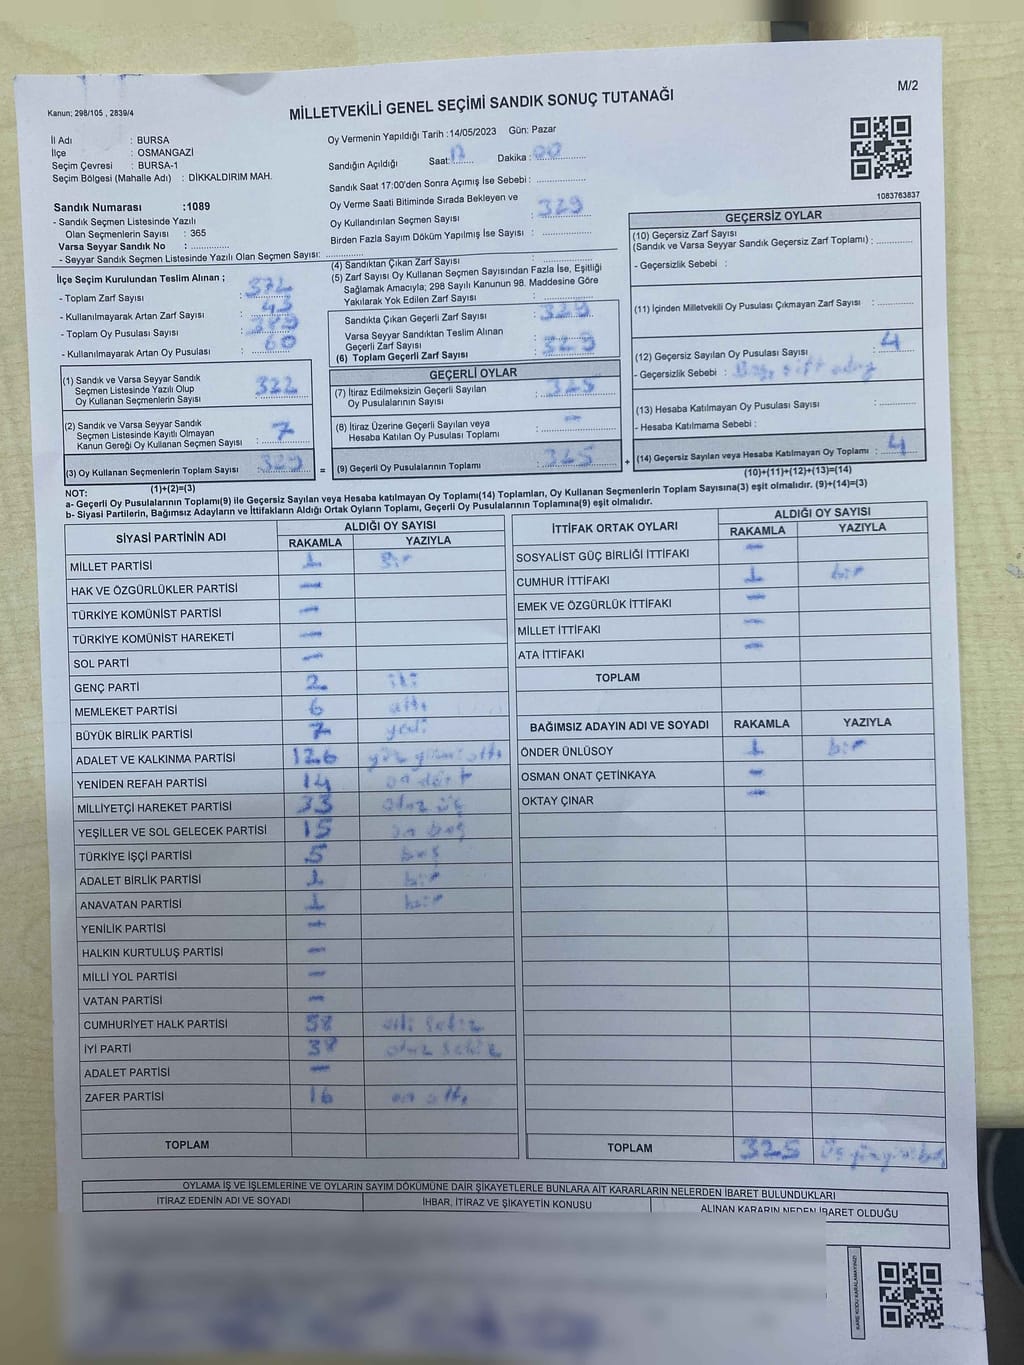 Kanun; 298/105 , 2839/4
MİLLETVEKİLİ GENEL SEÇİMİ SANDIK SONUÇ TUTANAĞI
M/2
İl Adı : BURSA
İlçe : OSMANGAZİ
Seçim Çevresi : BURSA-1
Seçim Bölgesi (Mahalle Adı) : DİKKALDIRIM MAH.
Sandık Numarası :1089
- Sandık Seçmen Listesinde Yazılı
Olan Seçmenlerin Sayısı : 365
Varsa Seyyar Sandık No : ..............
- Seyyar Sandık Seçmen Listesinde Yazılı Olan Seçmen Sayısı: ..............
Oy Vermenin Yapıldığı Tarih :14/05/2023 Gün: Pazar
Sandığın Açıldığı Saat: Dakika : 00
Sandık Saat 17:00'den Sonra Açımış İse Sebebi : ..............
Oy Verme Saati Bitiminde Sırada Bekleyen ve
Oy Kullandırılan Seçmen Sayısı : 329
Birden Fazla Sayım Döküm Yapılmış İse Sayısı : ..............
1083763837
İlçe Seçim Kurulundan Teslim Alınan ;
- Toplam Zarf Sayısı : 372
- Kullanılmayarak Artan Zarf Sayısı : 43
- Toplam Oy Pusulası Sayısı : 389
- Kullanılmayarak Artan Oy Pusulası : 60
(1) Sandık ve Varsa Seyyar Sandık
Seçmen Listesinde Yazılı Olup
Oy Kullanan Seçmenlerin Sayısı : 322
(2) Sandık ve Varsa Seyyar Sandık
Seçmen Listesinde Kayıtlı Olmayan
Kanun Gereği Oy Kullanan Seçmen Sayısı : 7
(3) Oy Kullanan Seçmenlerin Toplam Sayısı : 329 =
(1)+(2)=(3)
(4) Sandıktan Çıkan Zarf Sayısı : ..............
(5) Zarf Sayısı Oy Kullanan Seçmen Sayısından Fazla İse, Eşitliği
Sağlamak Amacıyla; 298 Sayılı Kanunun 98. Maddesine Göre
Yakılarak Yok Edilen Zarf Sayısı : ..............
Sandıkta Çıkan Geçerli Zarf Sayısı : 329
Varsa Seyyar Sandıktan Teslim Alınan
Geçerli Zarf Sayısı
(6) Toplam Geçerli Zarf Sayısı : 329
GEÇERLİ OYLAR
(7) İtiraz Edilmeksizin Geçerli Sayılan
Oy Pusulalarının Sayısı : 325
(8) İtiraz Üzerine Geçerli Sayılan veya
Hesaba Katılan Oy Pusulası Toplamı : -
(9) Geçerli Oy Pusulalarının Toplamı : 325 +
GEÇERSİZ OYLAR
(10) Geçersiz Zarf Sayısı
(Sandık ve Varsa Seyyar Sandık Geçersiz Zarf Toplamı) : ..............
- Geçersizlik Sebebi :
(11) İçinden Milletvekili Oy Pusulası Çıkmayan Zarf Sayısı : ..............
(12) Geçersiz Sayılan Oy Pusulası Sayısı : 4
- Geçersizlik Sebebi :
(13) Hesaba Katılmayan Oy Pusulası Sayısı : ..............
- Hesaba Katılmama Sebebi :
(14) Geçersiz Sayılan veya Hesaba Katılmayan Oy Toplamı : 4
(10)+(11)+(12)+(13)=(14)
NOT:
a- Geçerli Oy Pusulalarının Toplamı(9) ile Geçersiz Sayılan veya Hesaba katılmayan Oy Toplamı(14) Toplamları, Oy Kullanan Seçmenlerin Toplam Sayısına(3) eşit olmalıdır. (9)+(14)=(3)
b- Siyasi Partilerin, Bağımsız Adayların ve İttifakların Aldığı Ortak Oyların Toplamı, Geçerli Oy Pusulalarının Toplamına(9) eşit olmalıdır.
SİYASİ PARTİNİN ADI ALDIĞI OY SAYISI
RAKAMLA YAZIYLA
MİLLET PARTİSİ 1 Bir
HAK VE ÖZGÜRLÜKLER PARTİSİ -
TÜRKİYE KOMÜNİST PARTİSİ -
TÜRKİYE KOMÜNİST HAREKETİ -
SOL PARTİ -
GENÇ PARTİ 2 iki
MEMLEKET PARTİSİ 6 altı
BÜYÜK BİRLİK PARTİSİ 7 yedi
ADALET VE KALKINMA PARTİSİ 126 yüz yirmi altı
YENİDEN REFAH PARTİSİ 14 on dört
MİLLİYETÇİ HAREKET PARTİSİ 33 otuz üç
YEŞİLLER VE SOL GELECEK PARTİSİ 15 on beş
TÜRKİYE İŞÇİ PARTİSİ 5 beş
ADALET BİRLİK PARTİSİ 1 bir
ANAVATAN PARTİSİ 1 bir
YENİLİK PARTİSİ -
HALKIN KURTULUŞ PARTİSİ -
MİLLİ YOL PARTİSİ -
VATAN PARTİSİ -
CUMHURİYET HALK PARTİSİ 58 elli sekiz
İYİ PARTİ 38 otuz sekiz
ADALET PARTİSİ -
ZAFER PARTİSİ 16 on altı
TOPLAM
İTTİFAK ORTAK OYLARI ALDIĞI OY SAYISI
RAKAMLA YAZIYLA
SOSYALİST GÜÇ BİRLİĞİ İTTİFAKI -
CUMHUR İTTİFAKI 1 bir
EMEK VE ÖZGÜRLÜK İTTİFAKI -
MİLLET İTTİFAKI -
ATA İTTİFAKI -
TOPLAM
BAĞIMSIZ ADAYIN ADI VE SOYADI RAKAMLA YAZIYLA
ÖNDER ÜNLÜSOY 1 bir
OSMAN ONAT ÇETİNKAYA -
OKTAY ÇINAR -
TOPLAM 325 Üç yüz yirmi beş
OYLAMA İŞ VE İŞLEMLERİNE VE OYLARIN SAYIM DÖKÜMÜNE DAİR ŞİKAYETLERLE BUNLARA AİT KARARLARIN NELERDEN İBARET BULUNDUKLARI
İTİRAZ EDENİN ADI VE SOYADI İHBAR, İTİRAZ VE ŞİKAYETİN KONUSU ALINAN KARARIN NEDEN İBARET OLDUĞU
KARE KODU KARALAMAYINIZ!